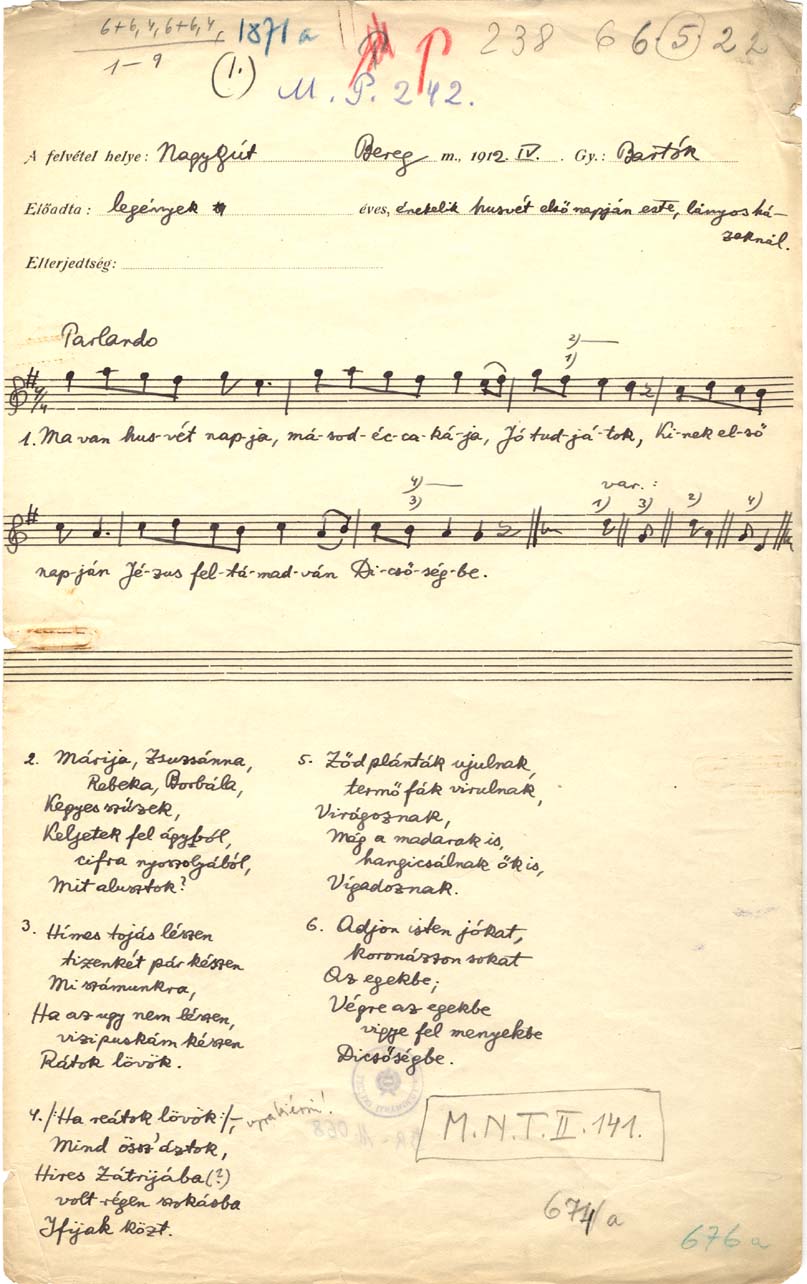 6+6, 4, 6+6, 4,
1-9
1871a
P
238 66(5)22
(1.)
M. P. 242.
A felvétel helye: Nagygút Bereg m., 1912. IV. Gy.: Bartók
Előadta: legények éves, éneklik husvét első napján este, lányos há-
zaknál.
Elterjedtség:
Parlando
2)
1)
4/4
1. Ma van hus-vét nap-ja, má-sod-éc-ca-ká-ja, Jó tud-já-tok, Ki-nek el-ső
4)
3)
var.:
1) 3) 2) 4)
nap-ján Jé-zus fel-tá-mad-ván Di-cső-ség-be.
2. Márija, Zsuzsánna,
Rebeka, Borbála,
Kegyes szűzek,
Keljetek fel ágyból,
cifra nyoszolyából,
Mit alusztok?
3. Hímes tojás lészen
tizenkét pár készen
Mi számunkra,
Ha az ugy nem lészen,
vizipuskám készen
Rátok lövök.
4. /:Ha reátok lövök:/,
Mind össz'áztok,
Hires Zátrijába(?)
volt régen szokásba
Ifijak közt.
5. Ződ plánták ujulnak,
termő fák virulnak,
Virágoznak,
Még a madarak is,
hangicsálnak ők is,
Vígadoznak.
6. Adjon isten jókat,
koronázzon sokat
Az egekbe;
Végre az egekbe
vigye fel menyekbe
Dicsőségbe.
M.N.T. II. 141.
674/a
676a